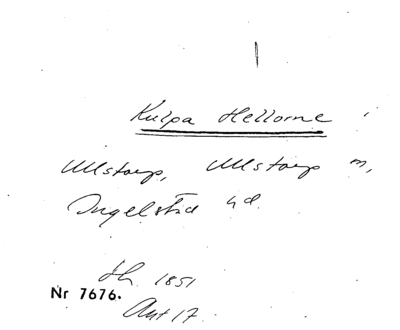 Kulpa Hellorne
Ullstorp, Ullstorp sn,
Ingelstad hd.
Sk. 1851
Nr 7676.
Ant 17